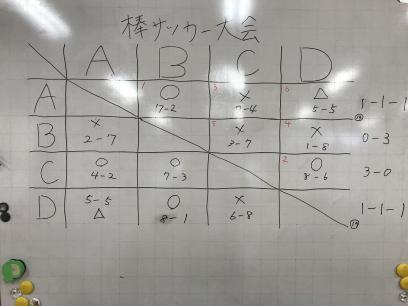 棒サッカー大会
A B C D
A 1 ○ 3 × 6 △
7-2 2-4 5-5 1-1-1
B × 5 × 4 ×
2-7 3-7 1-8 0-3
C ○ ○ 2 ○
4-2 7-3 8-6 3-0
D 5-5 ○ × 1-1-1
△ 8-1 6-8